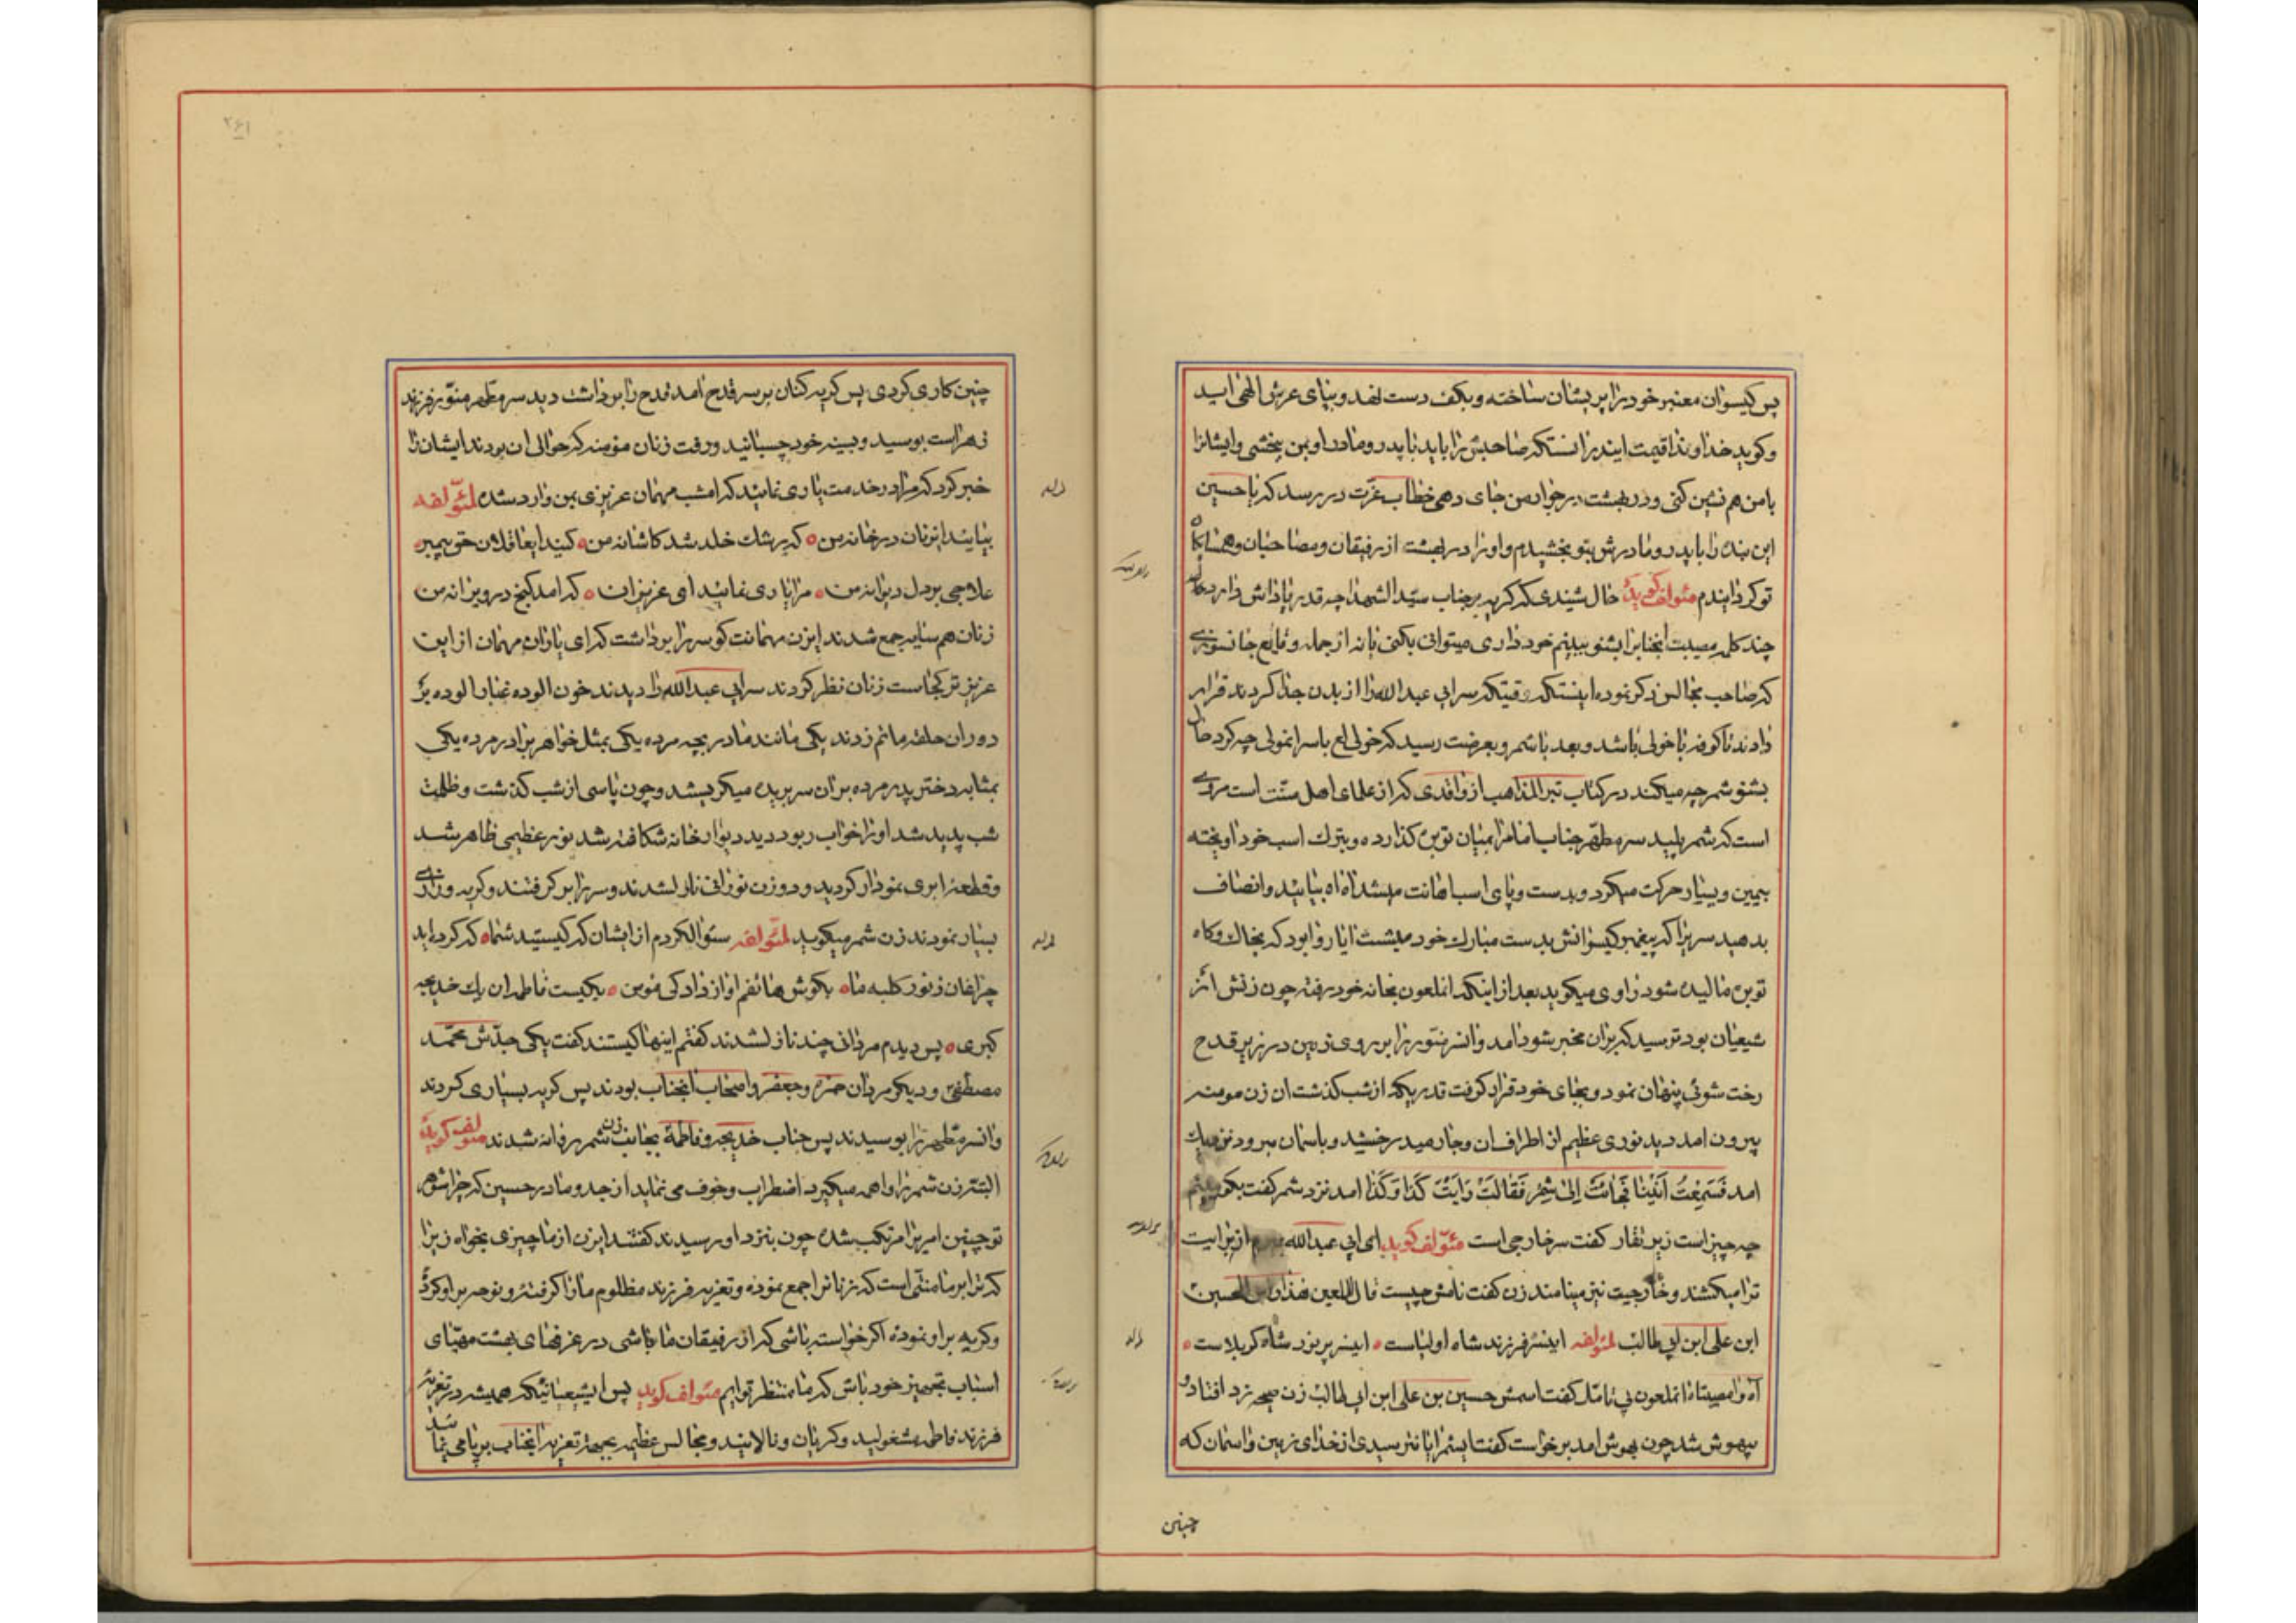 پس گیسوان معنبر خود را پریشان ساخته و بکف دست نهد و بپای عرش الهی اید
و کوید خداوندا قیمت ایندر انستکه صاحبش را باید با پدر و مادر او بمن بخشی و ایشانرا
با من هم نشین کنی و در بهشت در جوار من جای دهی خطاب عزت در رسد که یا حسین
این بنده را با پدر و مادرش بتو بخشیدم و او را در بهشت از رفیقان و مصاحبان و همسایکان
تو کردانیدم مئولف کوید حال شنیدی که کریه بر جناب سید الشهدا چه قدر پاداش دارد حال
چند کلمه مصیبت انجنابرا بشنو ببینم خود داری میتوانی بکنی یا نه از جمله وقایع جانسوزی
که صاحب مجالس ذکر نموده اینستکه وقتیکه سر ابی عبدالله را از بدن جدا کردند قرار
دادند تا کوفه با خولی باشد و بعد با شمر و بعرضت رسید که خولی لع با سر انمولی چه کرد حال
بشنو شمر چه میکند در کتاب تبر المذاهب از واقدی که از علمای اهل سنت است مروی
است که شمر پلید سر مطهر جناب امام را بمیان توبره کذارده و بترک اسب خود اویخته
بیمین و یسار حرکت میکرد و بدست و پای اسب اهانت میشد اه اه بیایید و انصاف
بدهید سریرا که پیغمبر کیسوانش بدست مبارک خود میشست ایا روا بود که بخاک و کاه
توبره مالیده شود راوی میکوید بعد از اینکه انملعون بخانه خود رفته چون زنش از
شیعیان بود ترسید که بران مخبر شود امد و انسر منور را بر روی زمین در زیر قدح
رخت شوئی پنهان نمود و بجای خود قرار کرفت قدریکه از شب کذشت ان زن مومنه
بیرون امد دید نوری عظیم از اطراف ان وجار میدرخشد و باسمان میرود نزدیک
امد فسمعت انینا فجائت الی شمر فقالت رایت کذا و کذا امد نزد شمر کفت بکو بینم
چه چیز است زیر تغار کفت سر خارجی است مئولف کوید ای ابی عبدالله از برایت
ترا میکشند و خارجیت نیز مینامند زن کفت نامش چیست قال اللعین هذا راس الحسین
ابن علی ابن ابی طالب لمئولفه اینسر فرزند شاه اولیاست اینسر پر نور شاه کربلاست
آه وامصیبتاه انملعون بی تامل کفت اسمش حسین بن علی ابن ابی طالب زن صیحه زد افتاد و
بیهوش شد چون بهوش امد برخواست کفت ایشمر ایا نترسیدی از خدای زمین و اسمان که
چنین
۲۶۱
چنین کاری کردی پس کریه کنان بر سر قدح امد قدح را برداشت دید سر مطهر منور فرزند
زهراست بوسید و بسینه خود چسبانید و رفت زنان مؤمنه که حوالی ان بودند ایشانرا
خبر کرد که مرا در خدمت یاری نمایید که امشب مهمان عزیزی بمن وارد شده لمئولفه
بیایید ایزنان در خانه من که رشک خلد شد کاشانه من کنید ایعاقلان حق پیمبر
علاجی بر دل دیوانه من مرا یاری نمائید ای عزیزان که امد کنج در ویرانه من
زنان همسایه جمع شدند ایزن مهمانت کو سر را برداشت که ای یاران مهمان از این
عزیز تر کجاست زنان نظر کردند سر ابی عبدالله را دیدند خون الوده غبار الوده بر
دور ان حلقه ماتم زدند یکی مانند مادر بچه مرده یکی بمثل خواهر برادر مرده یکی
بمثابه دختر پدر مرده بران سر بریده میکریستند و چون پاسی از شب کذشت و ظلمت
شب پدید شد او را خواب ربود دید دیوار خانه شکافته شد نور عظیمی ظاهر شد
و قطعه ابری نمودار کردید و دو زن نورانی نازل شدند و سر را بر کرفتند و کریه و زاری
بسیار نمودند زن شمر میکوید لمئولفه سئوال کردم از ایشان که کیستید شما که کرده اید
چراغان ز نور کلبه ما بکوش هاتفم اواز داد کی مؤمن یکیست فاطمه ان یک خدیجه
کبری پس دیدم مردانی چند نازل شدند کفتم اینها کیستند کفت یکی جدش محمد
مصطفی و دیکر مردان حمزه و جعفر و اصحاب انجناب بودند پس کریه بسیاری کردند
و انسر مطهر را بوسیدند پس جناب خدیجه و فاطمه بجانب زن شمر روانه شدند مئولف کوید
البته زن شمر را واهمه میکیرد اضطراب و خوف می نماید از جد و مادر حسین که چرا شوهر
تو چنین امریرا مرتکب شده چون بنزد او رسیدند کفتند ایزن از ما چیزی بخواه زیرا
که ترا بر ما منتی است که زنانرا جمع نموده و تعزیه فرزند مظلوم ما را کرفته و نوحه بر او کرده
و کریه بر او نموده اکر خواسته باشی که از رفیقان ما باشی در غرفهای بهشت مهیای
اسباب تجهیز خود باش که ما منتظر توایم مئولف کوید پس ایشیعیانیکه همیشه در تعزیه
فرزند فاطمه مشغولید و کریان و نالانید و مجالس عظیمه بجهة تعزیه انجناب برپا می نمائید